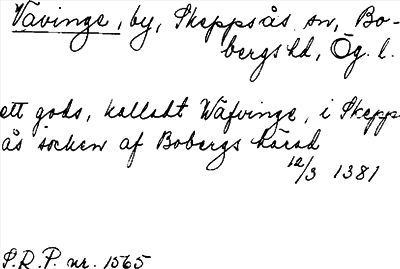 Vävinge, by, Skeppsås sn, Bo-
bergs hd, Ög. l.
ett gods, kalladt Wäfvinge, i Skepp
ås socken af Bobergs härad
12/3 1381
S.R.P. nr. 1565